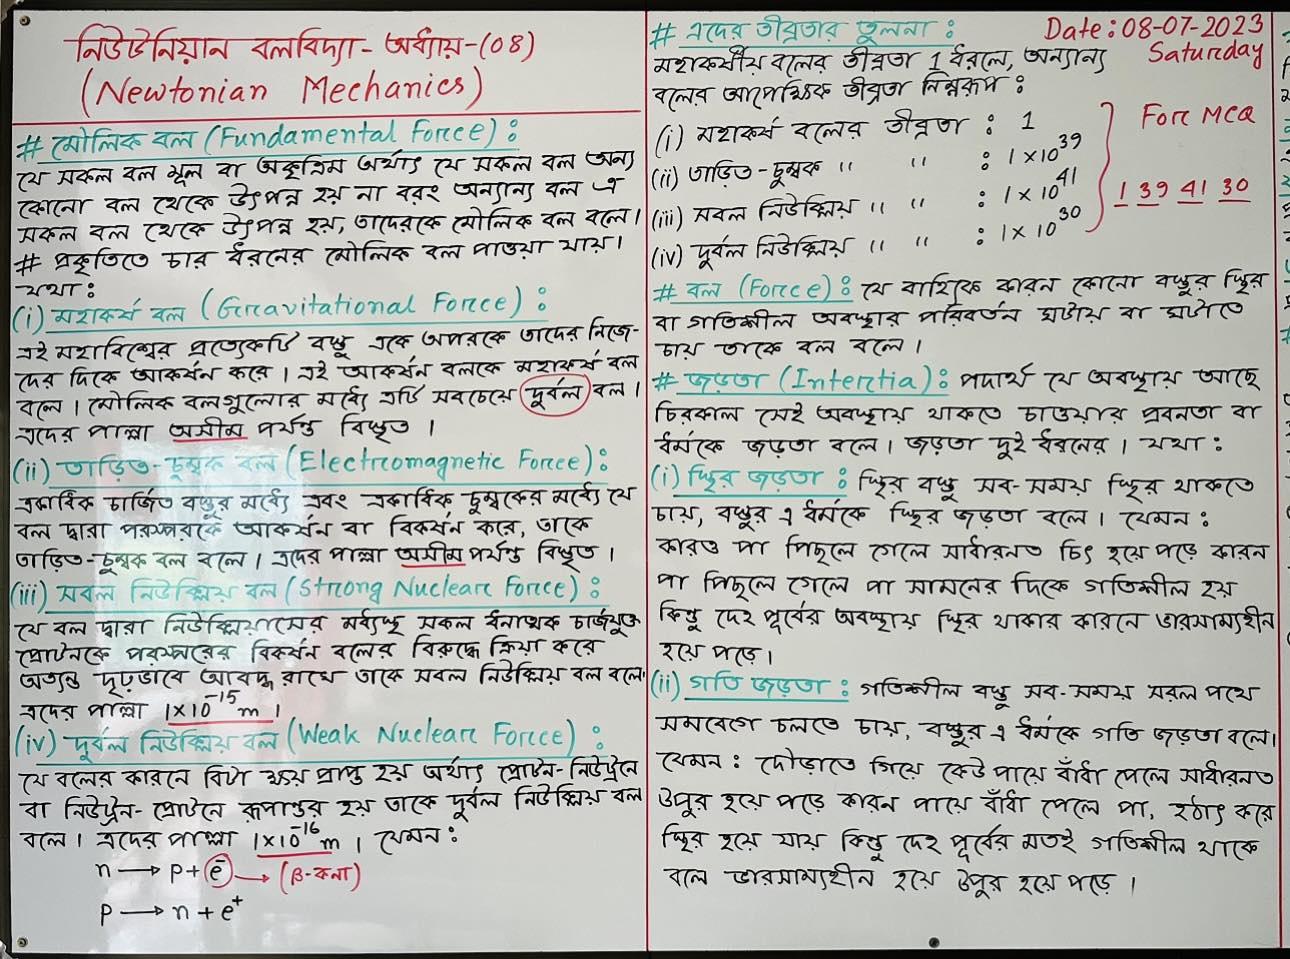 নিউটনিয়ান বলবিদ্যা- অধ্যায়-(০৪)
(Newtonian Mechanics)
# মৌলিক বল (Fundamental Force) :
যে সকল বল মূল বা অকৃত্রিম অর্থাৎ যে সকল বল অন্য
কোনো বল থেকে উৎপন্ন হয় না বরং অন্যান্য বল এ
সকল বল থেকে উৎপন্ন হয়, তাদেরকে মৌলিক বল বলে।
# প্রকৃতিতে চার ধরনের মৌলিক বল পাওয়া যায়।
যথা :
(i) মহাকর্ষ বল (Gravitational Force) :
এই মহাবিশ্বের প্রত্যেকটি বস্তু একে অপরকে তাদের নিজে-
দের দিকে আকর্ষন করে। এই আকর্ষন বলকে মহাকর্ষ বল
বলে। মৌলিক বলগুলোর মধ্যে এটি সবচেয়ে দুর্বল বল।
এদের পাল্লা অসীম পর্যন্ত বিস্তৃত।
(ii) তাড়িত-চুম্বক বল (Electromagnetic Force) :
একাধিক চার্জিত বস্তুর মধ্যে এবং একাধিক চুম্বকের মধ্যে যে
বল দ্বারা পরস্পরকে আকর্ষন বা বিকর্ষন করে, তাকে
তাড়িত-চুম্বক বল বলে। এদের পাল্লা অসীম পর্যন্ত বিস্তৃত।
(iii) সবল নিউক্লিয় বল (Strong Nuclear Force) :
যে বল দ্বারা নিউক্লিয়াসের মধ্যস্থ সকল ধনাত্মক চার্জযুক্ত
প্রোটনকে পরস্পরের বিকর্ষন বলের বিরুদ্ধে ক্রিয়া করে
অত্যন্ত দৃঢ়ভাবে আবদ্ধ রাখে তাকে সবল নিউক্লিয় বল বলে।
এদের পাল্লা 1×10⁻¹⁵ m ।
(iv) দুর্বল নিউক্লিয় বল (Weak Nuclear Force) :
যে বলের কারনে বিটা ক্ষয় প্রাপ্ত হয় অর্থাৎ প্রোটন-নিউট্রনে
বা নিউট্রন-প্রোটনে রূপান্তর হয় তাকে দুর্বল নিউক্লিয় বল
বলে। এদের পাল্লা 1×10⁻¹⁶ m । যেমন :
n → p + e⁻ → (β-কনা)
p → n + e⁺
# এদের তীব্রতার তুলনা :
Date : 08-07-2023
Saturday
মহাকর্ষীয় বলের তীব্রতা 1 ধরলে, অন্যান্য
বলের আপেক্ষিক তীব্রতা নিম্নরূপ :
(i) মহাকর্ষ বলের তীব্রতা : 1
(ii) তাড়িত-চুম্বক " " : 1×10³⁹
(iii) সবল নিউক্লিয় " " : 1×10⁴¹
(iv) দুর্বল নিউক্লিয় " " : 1×10³⁰
For MCQ
1 39 41 30
# বল (Force) : যে বাহ্যিক কারন কোনো বস্তুর স্থির
বা গতিশীল অবস্থার পরিবর্তন ঘটায় বা ঘটাতে
চায় তাকে বল বলে।
# জড়তা (Intertia) : পদার্থ যে অবস্থায় আছে
চিরকাল সেই অবস্থায় থাকতে চাওয়ার প্রবনতা বা
ধর্মকে জড়তা বলে। জড়তা দুই ধরনের। যথা :
(i) স্থির জড়তা : স্থির বস্তু সব-সময় স্থির থাকতে
চায়, বস্তুর এ ধর্মকে স্থির জড়তা বলে। যেমন :
কারও পা পিছলে গেলে সাধারনত চিৎ হয়ে পড়ে কারন
পা পিছলে গেলে পা সামনের দিকে গতিশীল হয়
কিন্তু দেহ পূর্বের অবস্থায় স্থির থাকার কারনে ভারসাম্যহীন
হয়ে পড়ে।
(ii) গতি জড়তা : গতিশীল বস্তু সব-সময় সরল পথে
সমবেগে চলতে চায়, বস্তুর এ ধর্মকে গতি জড়তা বলে।
যেমন : দৌড়াতে গিয়ে কেউ পায়ে বাঁধা পেলে সাধারনত
উপুর হয়ে পড়ে কারন পায়ে বাঁধা পেলে পা, হঠাৎ করে
স্থির হয়ে যায় কিন্তু দেহ পূর্বের মতই গতিশীল থাকে
বলে ভারসাম্যহীন হয়ে উপুর হয়ে পড়ে।